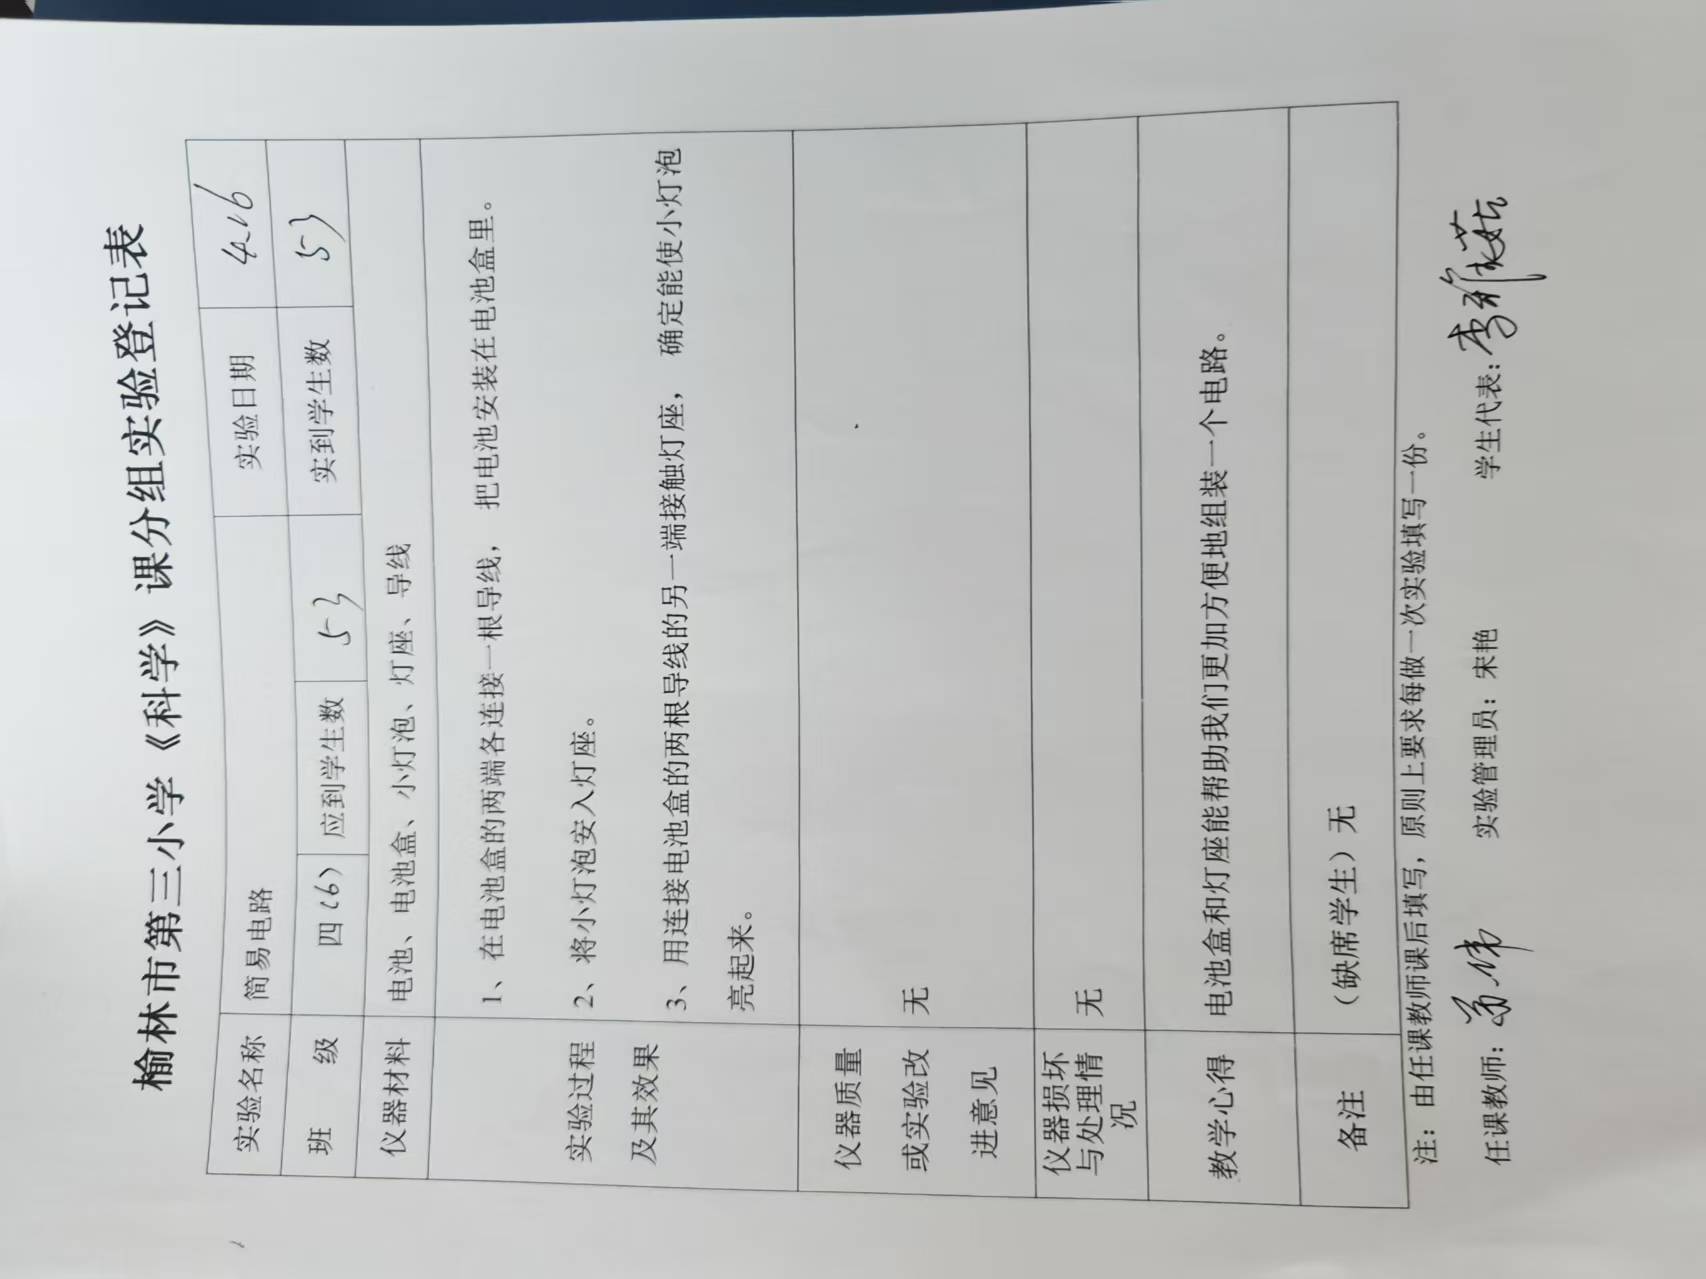 榆林市第三小学《科学》课分组实验登记表
实验名称 简易电路 实验日期
班 级 四(6) 应到学生数 53 实到学生数 53
仪器材料 电池、电池盒、小灯泡、灯座、导线
实验过程
及其效果
1、在电池盒的两端各连接一根导线， 把电池安装在电池盒里。
2、将小灯泡安入灯座。
3、用连接电池盒的两根导线的另一端接触灯座， 确定能使小灯泡
亮起来。
仪器质量
或实验改
进意见
无
仪器损坏
与处理情
况
无
教学心得 电池盒和灯座能帮助我们更加方便地组装一个电路。
备注 （缺席学生）无
注： 由任课教师课后填写，原则上要求每做一次实验填写一份。
任课教师： 实验管理员：宋艳 学生代表：